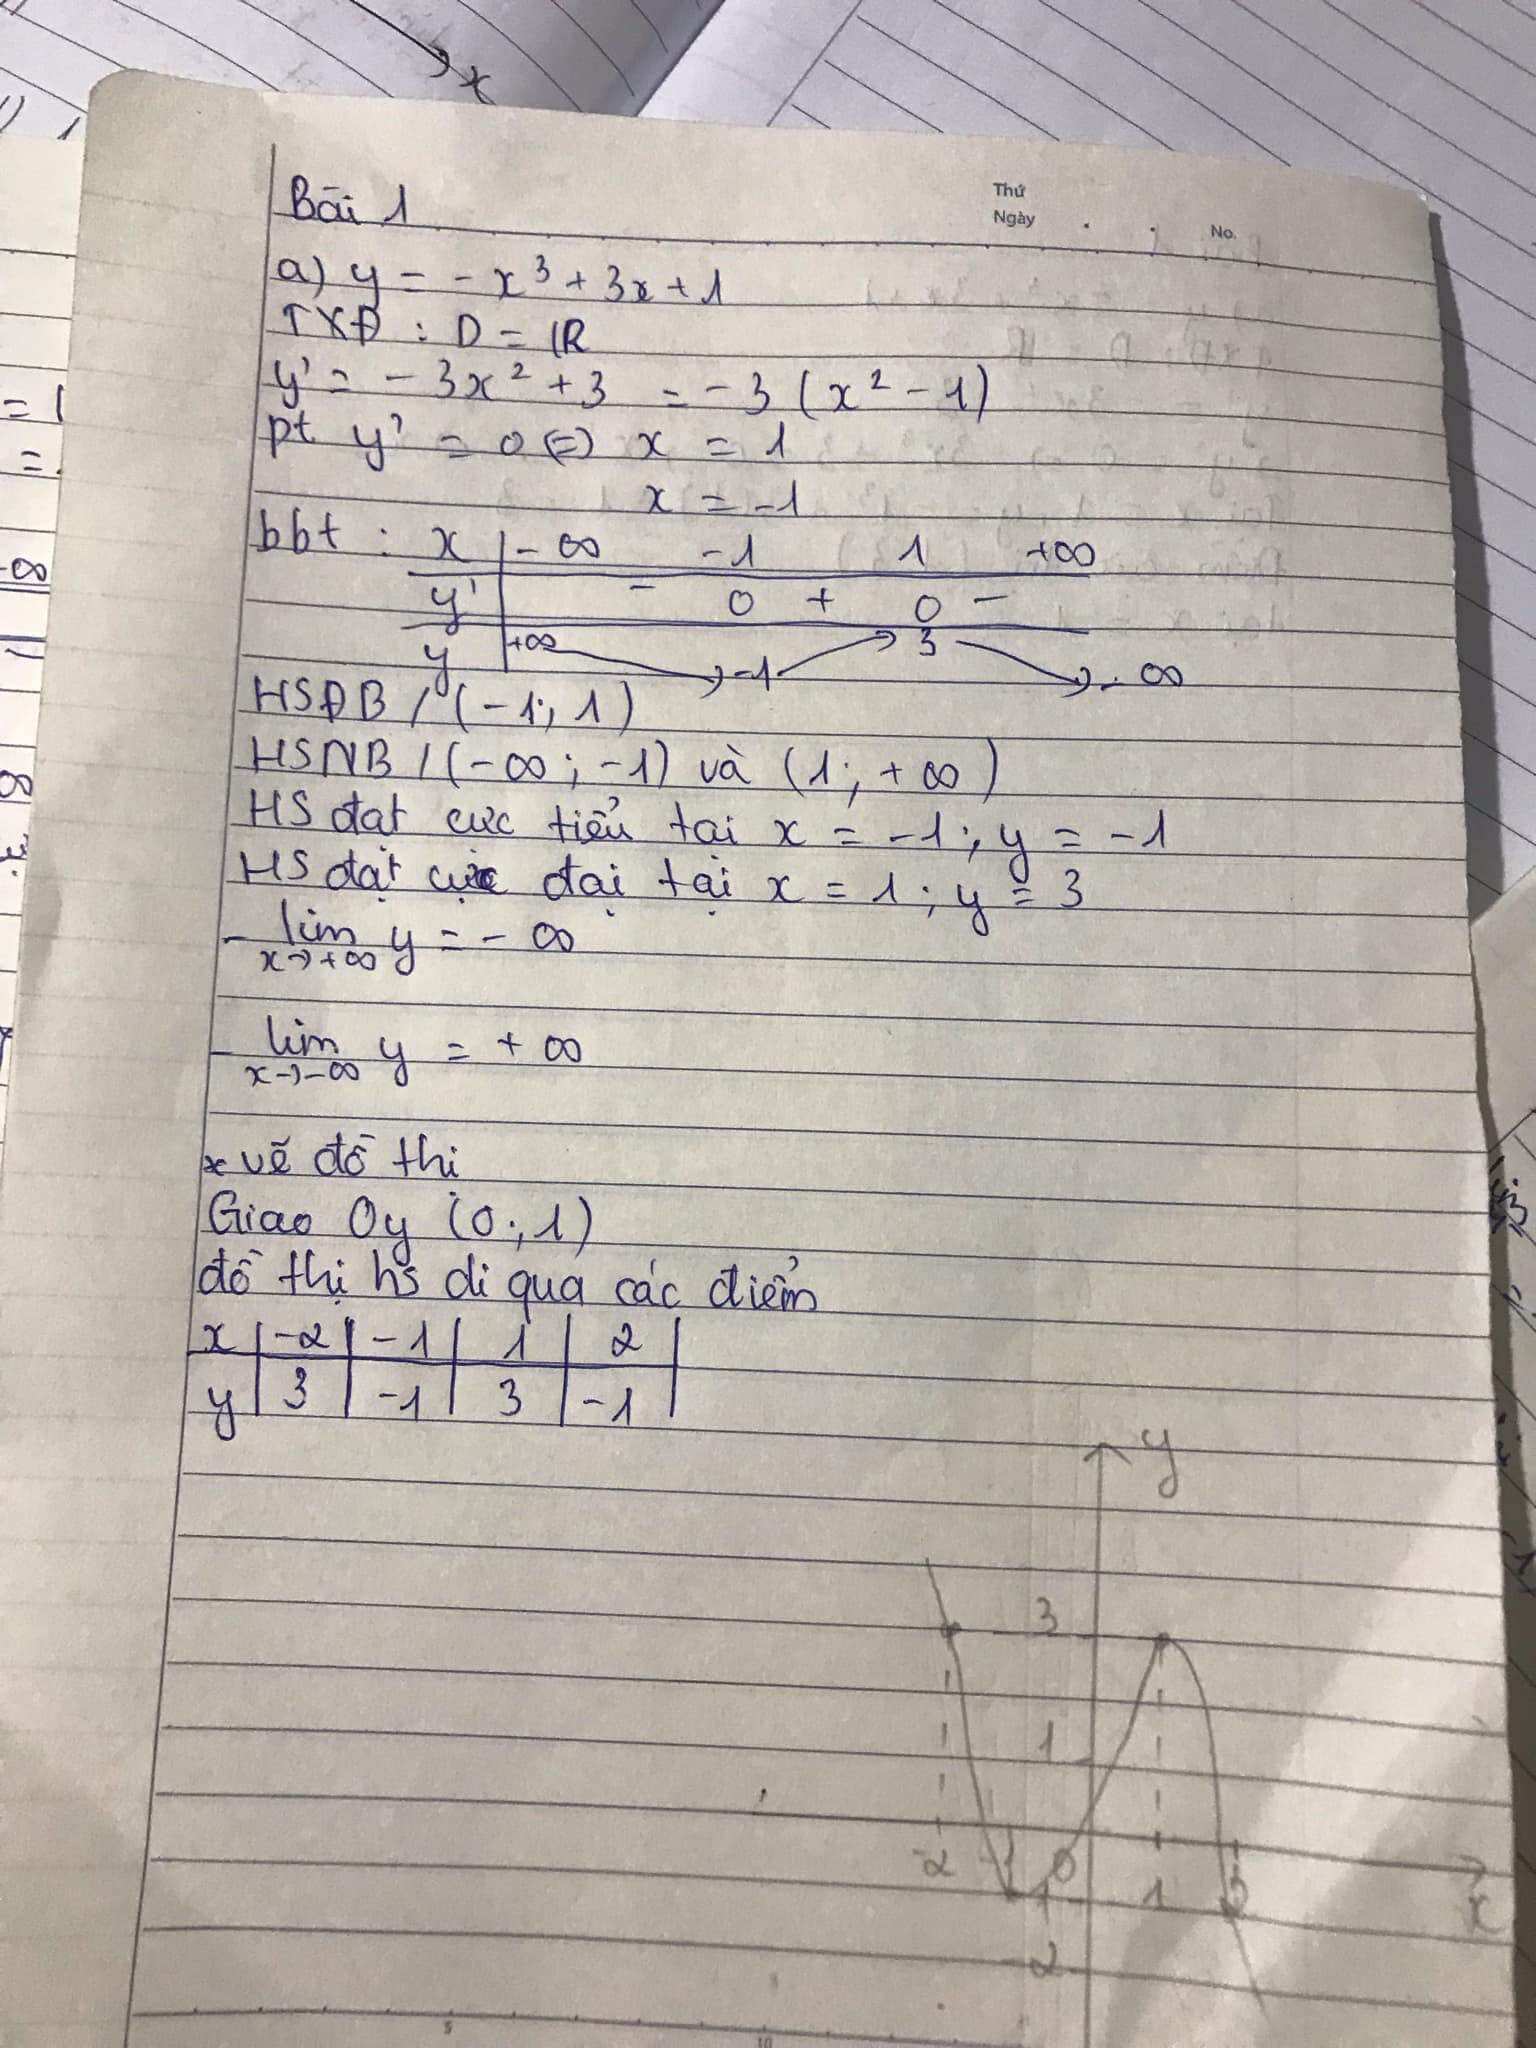 x
Thứ
Ngày
No.
Bài 1
a) y = - x³ + 3x + 1
TXĐ : D = ℝ
y' = - 3x² + 3 = - 3 (x² - 1)
pt y' = 0 (=) x = 1
x = -1
bbt : x | -∞ -1 1 +∞
y' | - 0 + 0 -
y | +∞ → -1 → 3 → -∞
HSĐB / (-1; 1)
HSNB / (-∞; -1) và (1; +∞)
HS đạt cực tiểu tại x = -1; y = -1
HS đạt cực đại tại x = 1; y = 3
- lim y = - ∞
x→+∞
- lim y = + ∞
x→-∞
x vẽ đồ thị
Giao Oy (0; 1)
đồ thị hs di qua các điểm
x | -2 | -1 | 1 | 2 |
y | 3 | -1 | 3 | -1 |
y
3
1
-2 -1 0 1 2
-1
x
-2
5
10